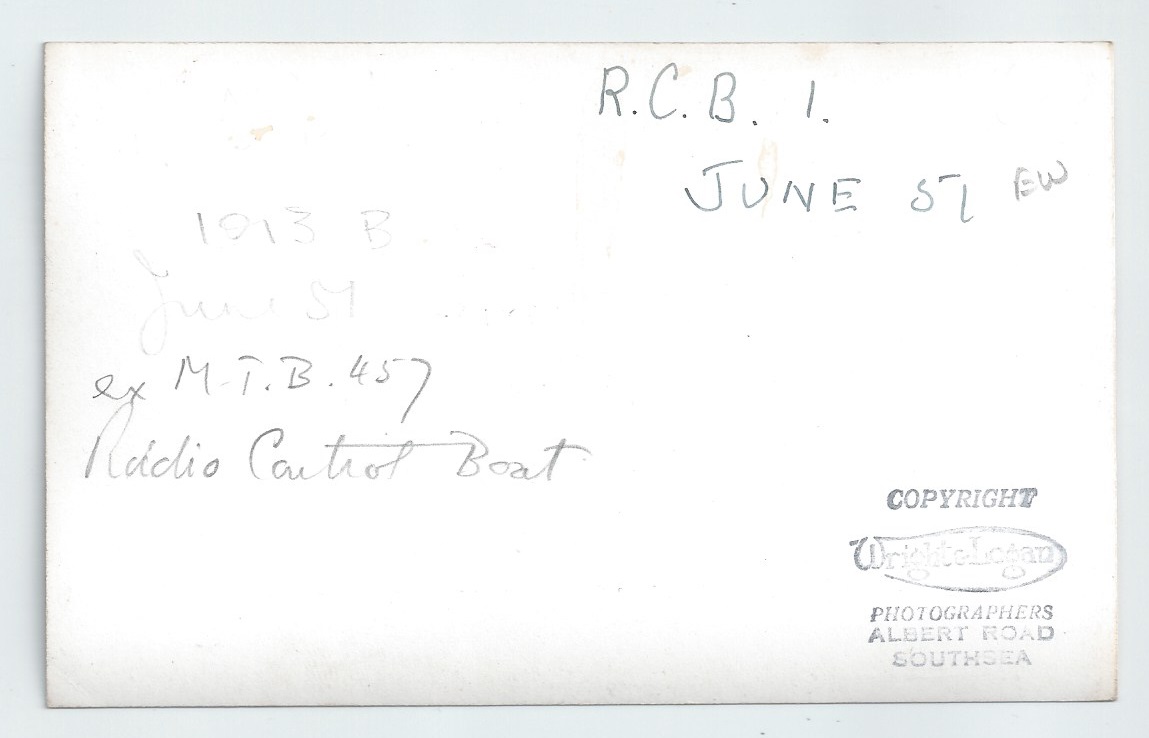 R.C.B. 1.
JUNE 51 EW
1913 B
June 51
ex M.T.B. 457
Radio Control Boat
COPYRIGHT
Wright & Logan
PHOTOGRAPHERS
ALBERT ROAD
SOUTHSEA